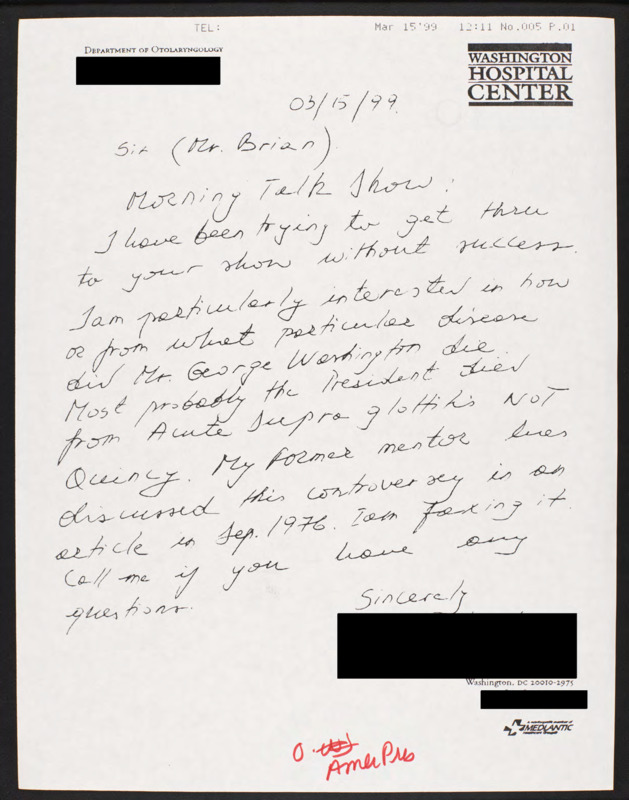 TEL:
Mar 15'99 12:11 No.005 P.01
DEPARTMENT OF OTOLARYNGOLOGY
WASHINGTON
HOSPITAL
CENTER
03/15/99.
Sir (Mr. Brian).
Morning Talk Show:
I have been trying to get thru
to your show without success.
I am particularly interested in how
or from what particular disease
did Mr. George Washington die.
Most probably the President died
from Acute Supraglottitis NOT
Quincy. My former mentor
discussed this controversey in an
article in Sep. 1976. I am faxing it.
Call me if you have any
questions.
Sincerely
Washington, DC 20010-2975
A member of
MEDLANTIC
O.
AmerPres